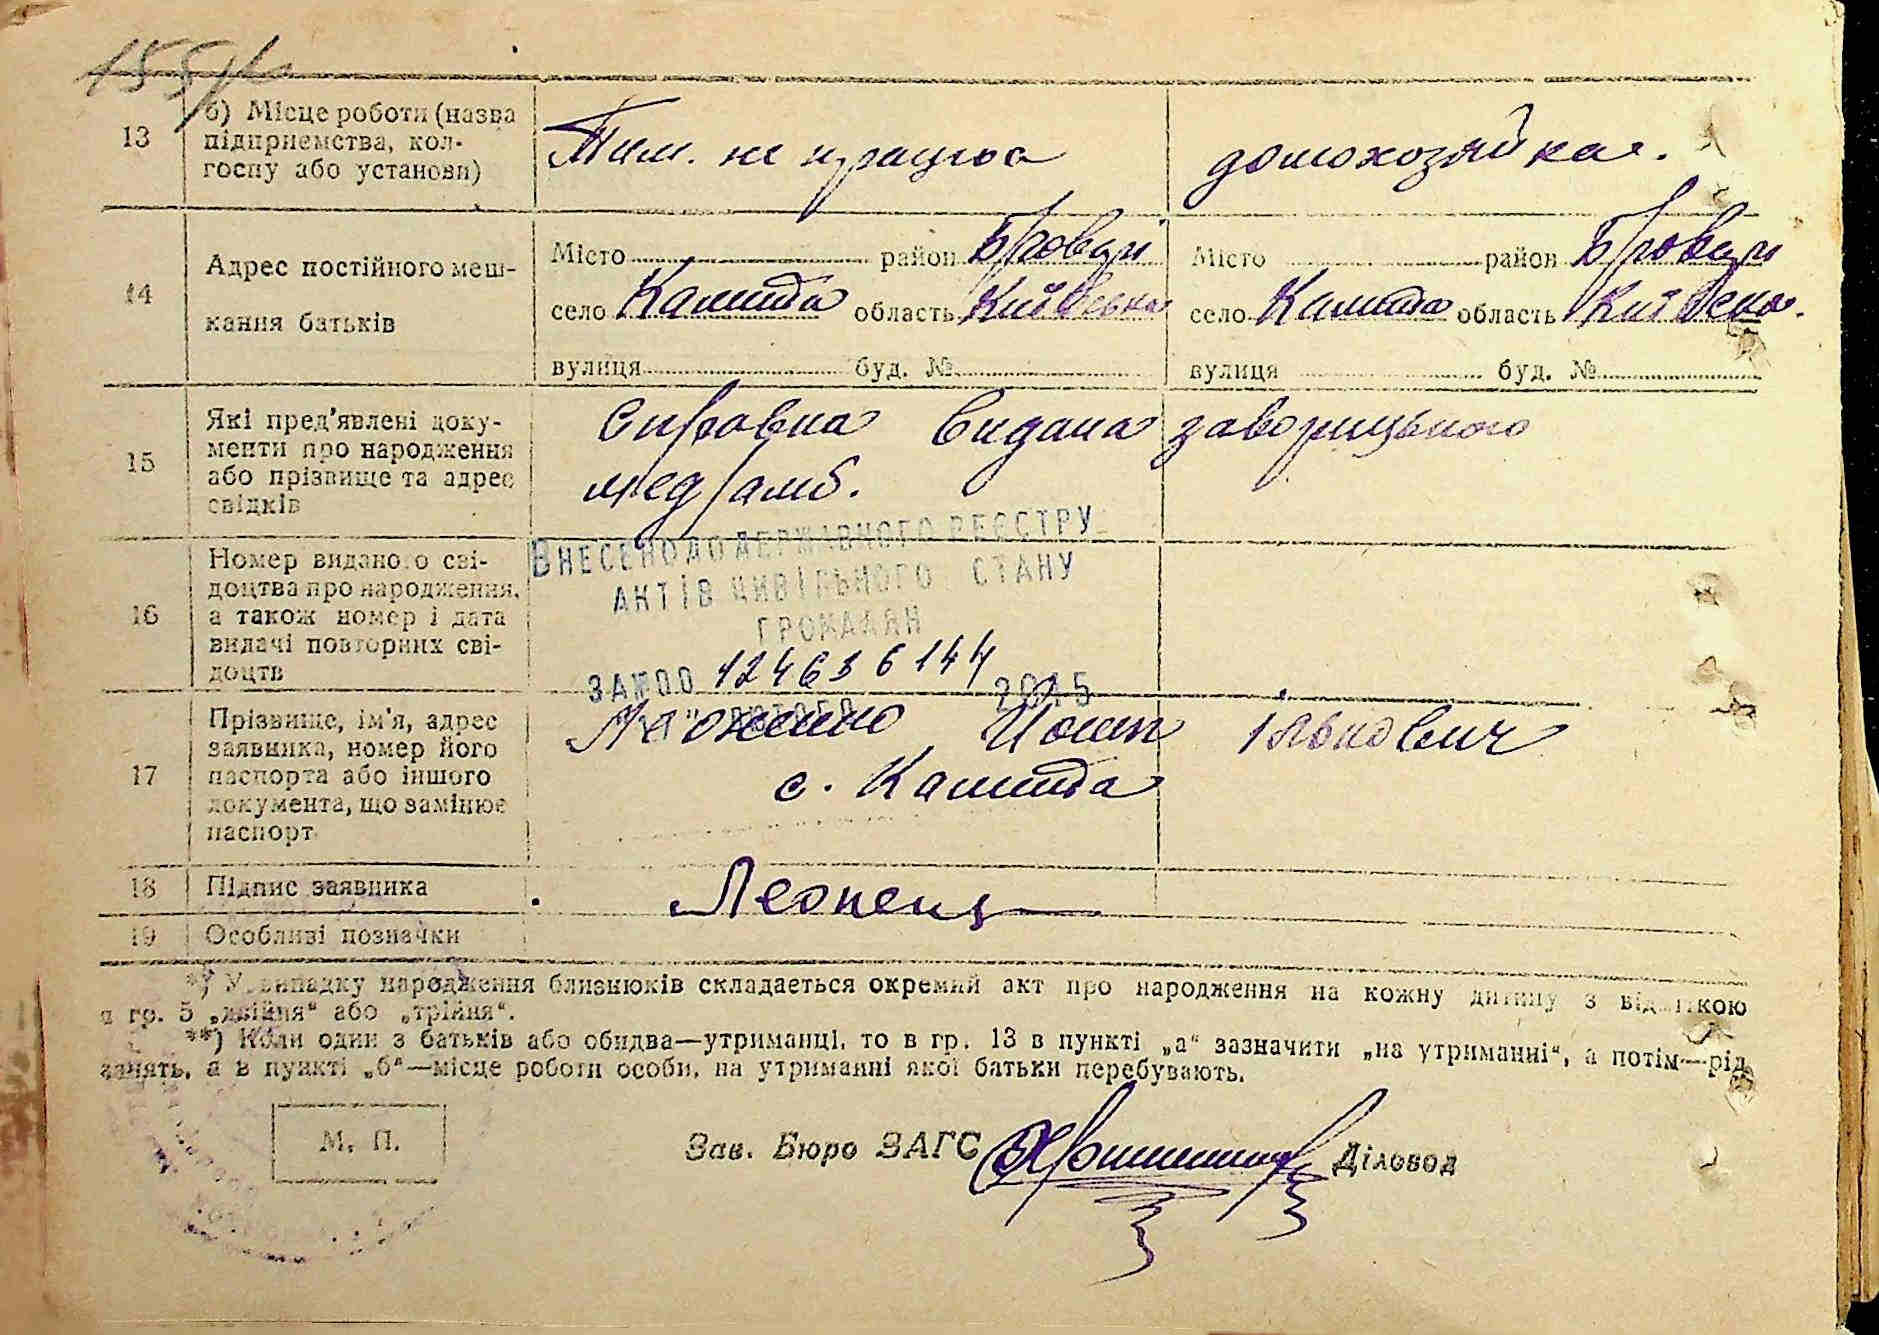 155
13
б) Місце роботи (назва підприємства, колгоспу або установи)
Тим. не працює
домохозяйка.
14
Адрес постійного мешкання батьків
Місто район Бровари
село Калита область Київська
вулиця буд. №
Місто район Бровари
село Калита область Київська.
вулиця буд. №
15
Які пред'явлені документи про народження або прізвище та адрес свідків
Справка видана заворицького
мед/амб.
16
Номер виданого свідоцтва про народження, а також номер і дата видачі повторних свідоцтв
ВНЕСЕНО ДО ДЕРЖАВНОГО РЕЄСТРУ
АКТІВ ЦИВІЛЬНОГО СТАНУ
ГРОМАДЯН
ЗА №00 124636144
2015
17
Прізвище, ім'я, адрес заявника, номер його паспорта або іншого документа, що замінює паспорт
Йосип
с. Калита
18
Підпис заявника
19
Особливі позначки
*) У випадку народження близнюків складається окремий акт про народження на кожну дитину з відміткою
в гр. 5 „двійня“ або „трійня“.
**) Коли один з батьків або обидва—утриманці, то в гр. 13 в пункті „а“ зазначити „на утриманні“, а потім—рід
занять, а в пункті „б“—місце роботи особи, на утриманні якої батьки перебувають.
М. П.
Зав. Бюро ЗАГС
Діловод